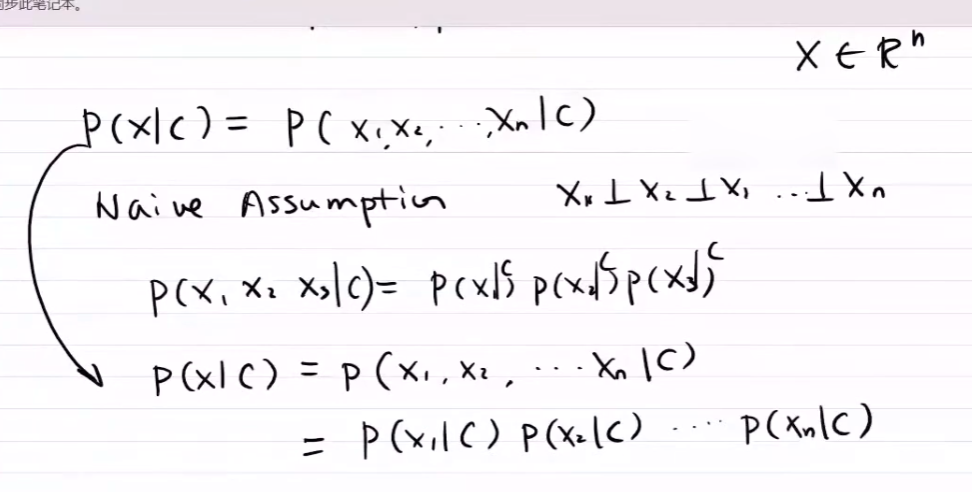 步此笔记本。
X ∈ Rⁿ
P(X|C) = P(x₁,x₂,...,Xₙ|C)
Naive Assumption X₁ ⊥ X₂ ⊥ X₁ ...⊥ Xₙ
P(X₁ X₂ X₃|C)= P(X₁|C) P(X₂|C) P(X₃|C)
P(X|C) = P(X₁,X₂, ...Xₙ|C)
= P(X₁|C) P(X₂|C) .... P(Xₙ|C)